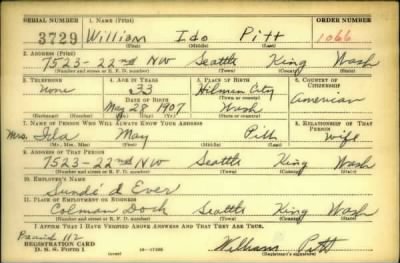 SERIAL NUMBER 1. NAME (Print) ORDER NUMBER
3729 William Ido Pitt 1066
(First) (Middle) (Last)
2. ADDRESS (Print)
7523-22nd NW Seattle King Wash
(Number and street or R. F. D. number) (Town) (County) (State)
3. TELEPHONE 4. AGE IN YEARS 5. PLACE OF BIRTH 6. COUNTRY OF CITIZENSHIP
None 33 Hilman City
DATE OF BIRTH (Town or county)
May 28 1907 Wash American
(Mo.) (Day) (Yr.) (State or country)
7. NAME OF PERSON WHO WILL ALWAYS KNOW YOUR ADDRESS 8. RELATIONSHIP OF THAT PERSON
Mrs. Ida May Pitt Wife
(Mr., Mrs., Miss) (First) (Middle) (Last)
9. ADDRESS OF THAT PERSON
7523-22nd NW Seattle King Wash
(Number and street or R. F. D. number) (Town) (County) (State)
10. EMPLOYER'S NAME
Sundé d Ever
11. PLACE OF EMPLOYMENT OR BUSINESS
Colman Dock Seattle King Wash
(Number and street or R. F. D. number) (Town) (County) (State)
I AFFIRM THAT I HAVE VERIFIED ABOVE ANSWERS AND THAT THEY ARE TRUE.
112
REGISTRATION CARD
D. S. S. Form 1 William Pitt
(Registrant's signature)